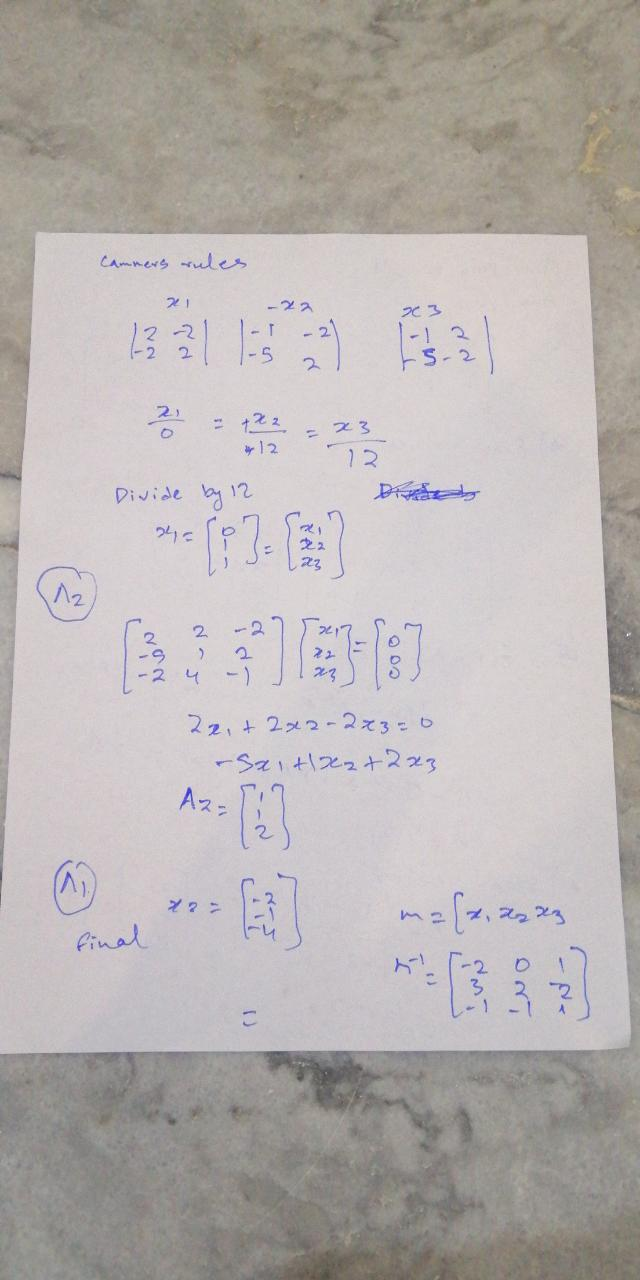 Cammers rules
x1 -x2 x3
|2 -2| |-1 -2| |-1 2|
|-2 2| |-5 2| |-5 -2|
x1/0 = +x2/+12 = x3/12
Divide by 12
x1 = [0 1 1] = [x1 x2 x3]
Λ2
[2 2 -2] [x1] = [0]
[-5 1 2] [x2] [0]
[-2 4 -1] [x3] [0]
2x1 + 2x2 - 2x3 = 0
-5x1 + 1x2 + 2x3
A2 = [1 1 2]
Λ1
x2 = [-2 -1 -4]
final
m = [x1 x2 x3
=
[-2 0 1]
[3 2 -2]
[-1 -1 1]
=